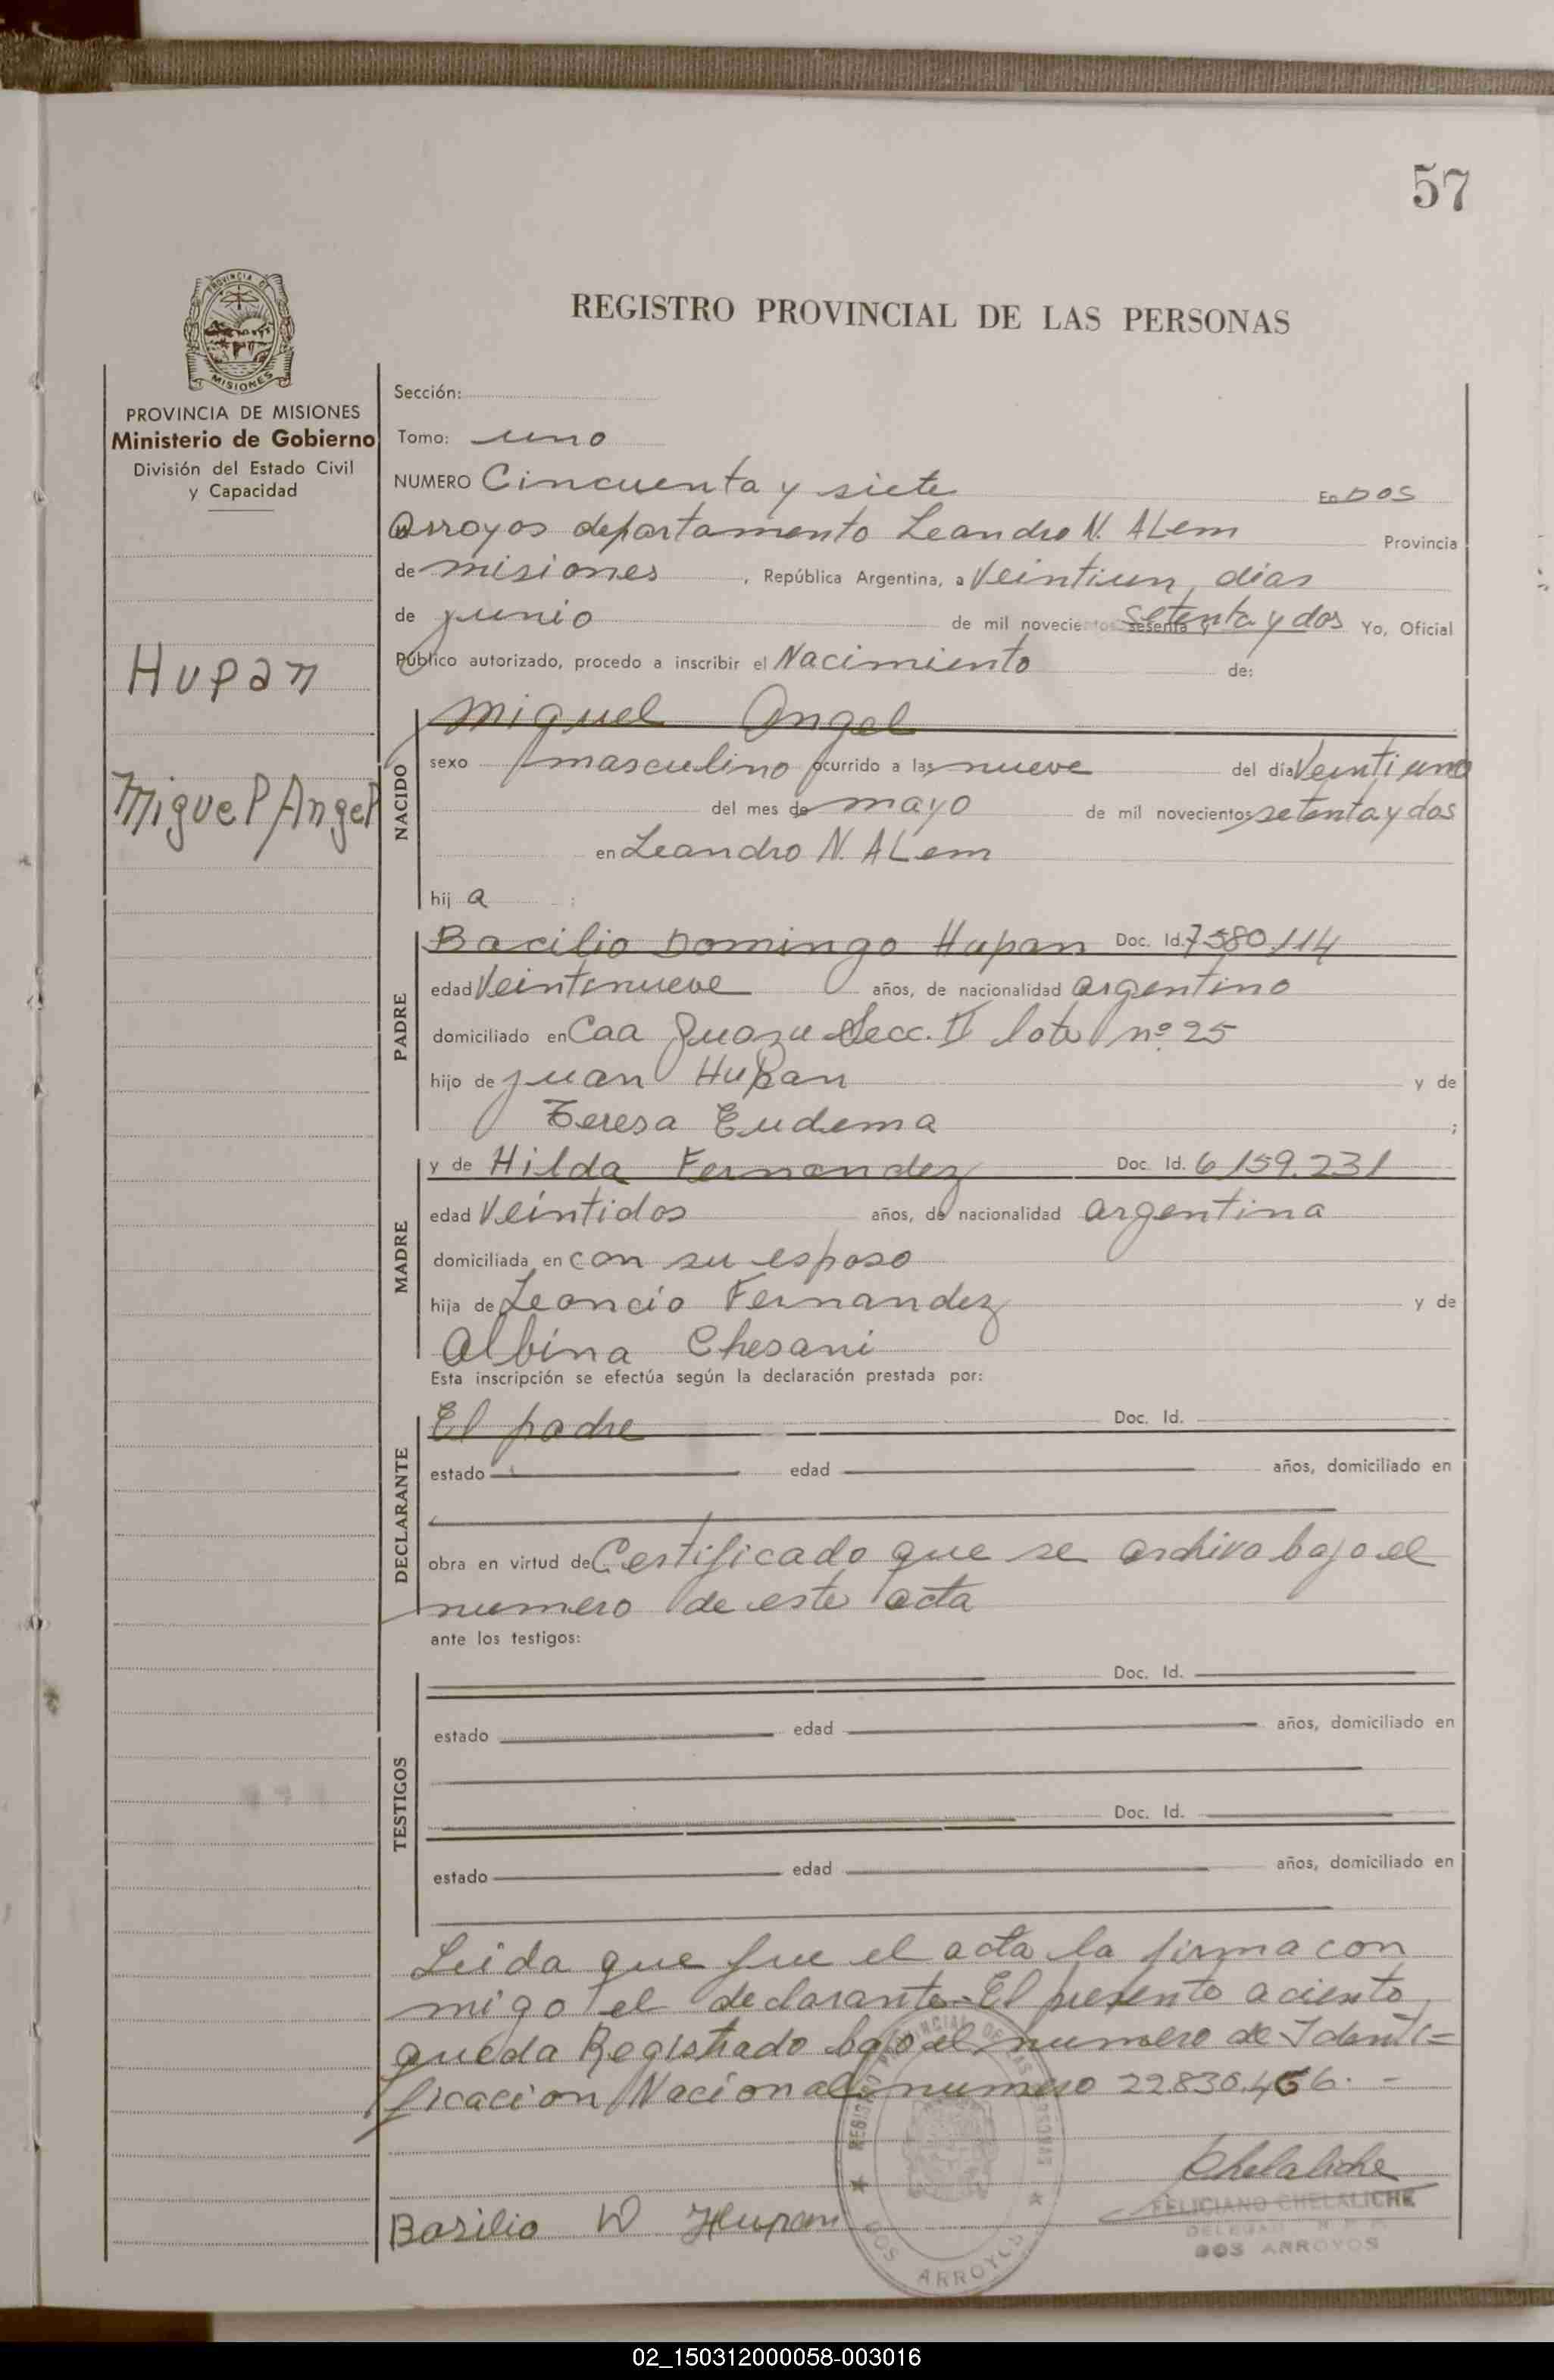 57
PROVINCIA DE
MISIONES
PROVINCIA DE MISIONES
Ministerio de Gobierno
División del Estado Civil
y Capacidad
Hupan
Miguel Angel
REGISTRO PROVINCIAL DE LAS PERSONAS
Sección:
Tomo: uno
NUMERO Cincuenta y siete En DOS
Arroyos departamento Leandro N. ALem Provincia
de misiones, República Argentina, a Veintiun dias
de junio de mil novecientos sesenta y setenta y dos Yo, Oficial
Público autorizado, procedo a inscribir el Nacimiento de:
NACIDO
Miguel Angel
sexo masculino ocurrido a las nueve del día Veintiuno
del mes de mayo de mil novecientos setenta y dos
en Leandro N. ALem
hij a ;
PADRE
Bacilio Domingo Hupan Doc. Id. 7580.114
edad Veintinueve años, de nacionalidad argentino
domiciliado en Caa Guazu Secc. II lote nº 25
hijo de Juan Hupan y de
Teresa Eudema ;
MADRE
y de Hilda Fernandez Doc. Id. 6159.231
edad Veintidos años, de nacionalidad argentina
domiciliada en con su esposo
hija de Leoncio Fernandez y de
Albina Chesani
Esta inscripción se efectúa según la declaración prestada por:
DECLARANTE
El padre Doc. Id.
estado edad años, domiciliado en
obra en virtud de Certificado que se archiva bajo el
numero de este acta
ante los testigos:
TESTIGOS
Doc. Id.
estado edad años, domiciliado en
Doc. Id.
estado edad años, domiciliado en
Leida que fue el acta la firma con
migo el declarante-El presente aciento
queda Registrado bajo el numero de Identi=
ficacion Nacional numero 22.830.456. -
REGISTRO PROVINCIAL DE LAS PERSONAS
DOS ARROYOS
Basilio D Hupan
Chelaliche
FELICIANO CHELALICHE
DOS ARROYOS
02_150312000058-003016